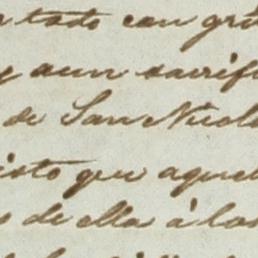 todo con gra
y aun sacrif
de San Nicol
isto que aquel
de ella á los